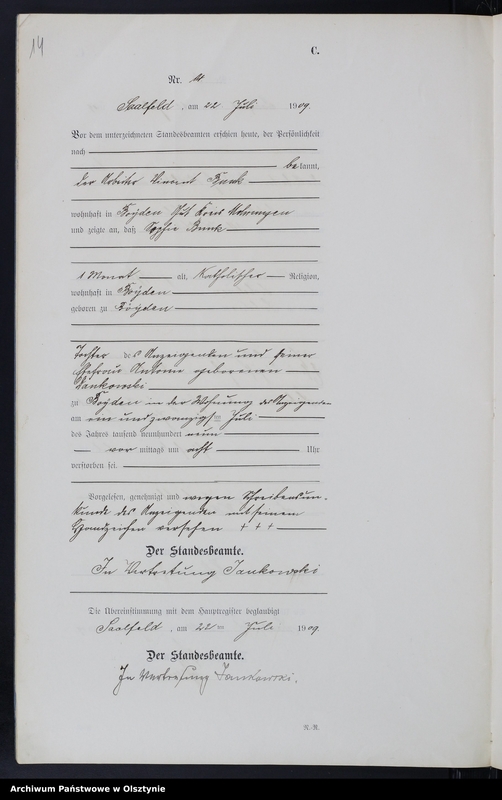 14
C.
Nr. 14
Saalfeld, am 22 Juli 1909.
Vor dem unterzeichneten Standesbeamten erschien heute, der Persönlichkeit
nach
bekannt,
der Arbeiter Vincent Bunk
wohnhaft in Boyden Gut Kreis Mohrungen
und zeigte an, daß Sophie Bunk
1 Monat alt, Katholischer Religion,
wohnhaft in Boyden
geboren zu Boyden
Tochter des Anzeigenden und seiner
Ehefrau Antonie geborenen
Jankowski
zu Boyden in der Wohnung des Anzeigenden
am ein und zwanzigsten Juli
des Jahres tausend neunhundert neun
vor mittags um acht Uhr
verstorben sei.
Vorgelesen, genehmigt und wegen Schreibensun-
kunde des Anzeigenden mit seinem
Handzeichen versehen + + +
Der Standesbeamte.
In Vertretung Jankowski
Die Übereinstimmung mit dem Hauptregister beglaubigt
Saalfeld, am 22 = Juli 1909.
Der Standesbeamte.
In Vertretung Jankowski.
Archiwum Państwowe w Olsztynie